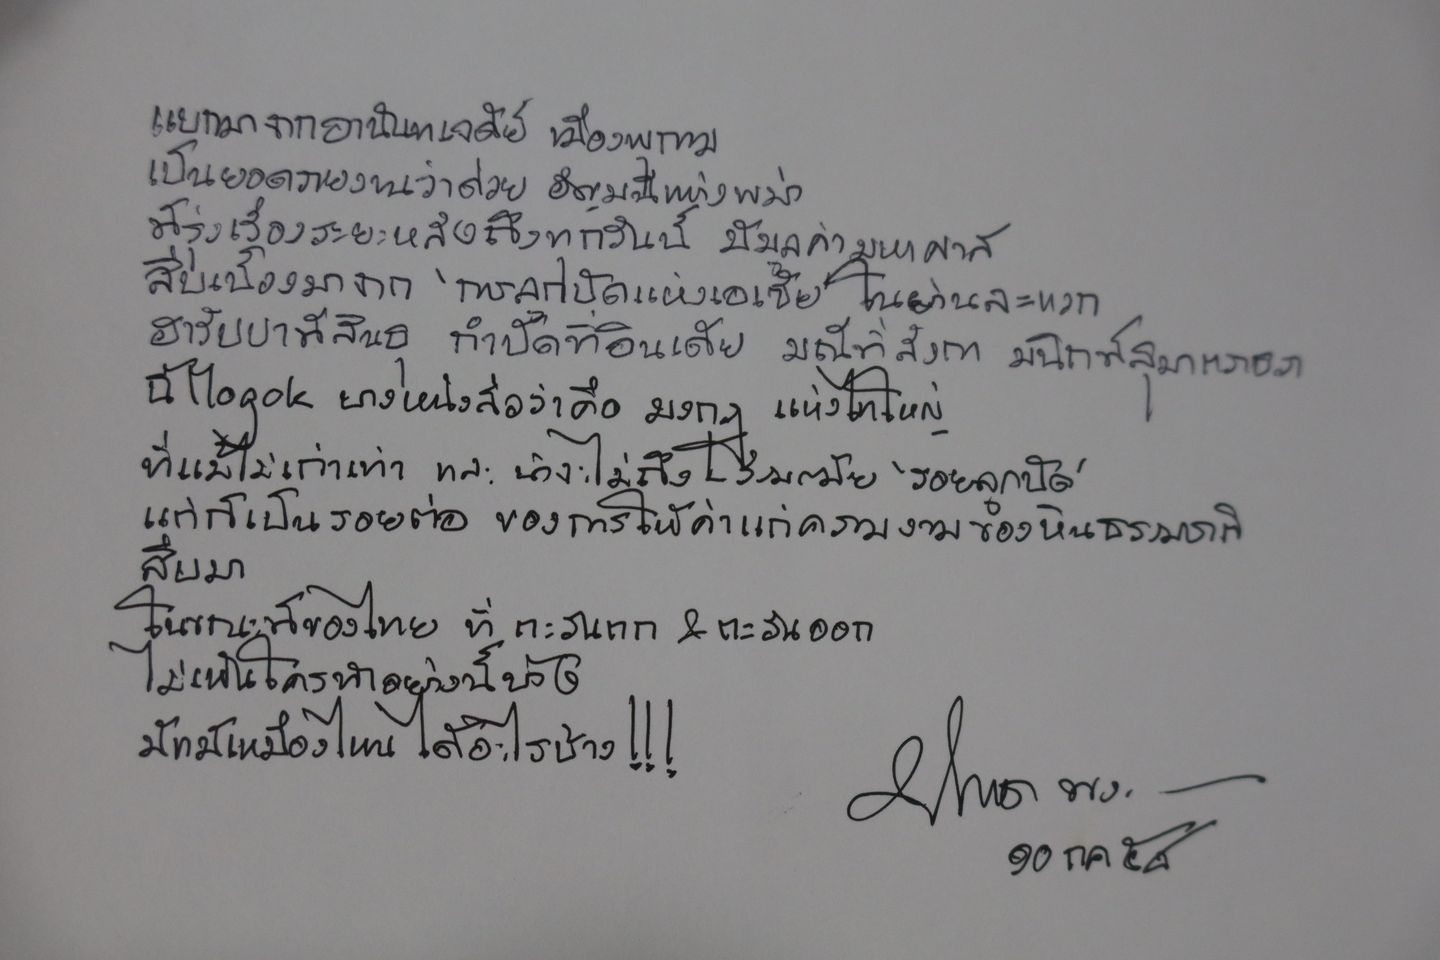 แยกมาจากอานันทเจดีย์ เมืองพุกาม
เป็นยอดของงานว่าด้วย อัญมณีแห่งพม่า
ที่รุ่งเรืองระยะหลังถึงทุกวันนี้ มีมูลค่ามหาศาล
สืบเนื่องมาจาก 'การลูกปัดแห่งเอเชีย' ในย่านละแวก
ฮารัปปาที่สินธุ กำปั๊ดที่อินเดีย มณีที่ลังกา มนิกที่สุมาตรา
นี้ Mogok บางหนังสือว่าคือ มงกุฎ แห่งไทใหญ่
ที่แม้ไม่เก่าเท่า และ น่าจะไม่ถึง ร่วมสมัย 'รอยลูกปัด'
แต่ก็เป็นรอยต่อ ของการให้ค่าแก่ความงามของหินธรรมชาติ
สืบมา
ในขณะที่ของไทย ที่ ตะวันตก & ตะวันออก
ไม่เห็นใครทำอย่างนี้บ้าง
มัทมีเหมืองไหน ได้อะไรบ้าง !!!
๑๐ กค ๕๘